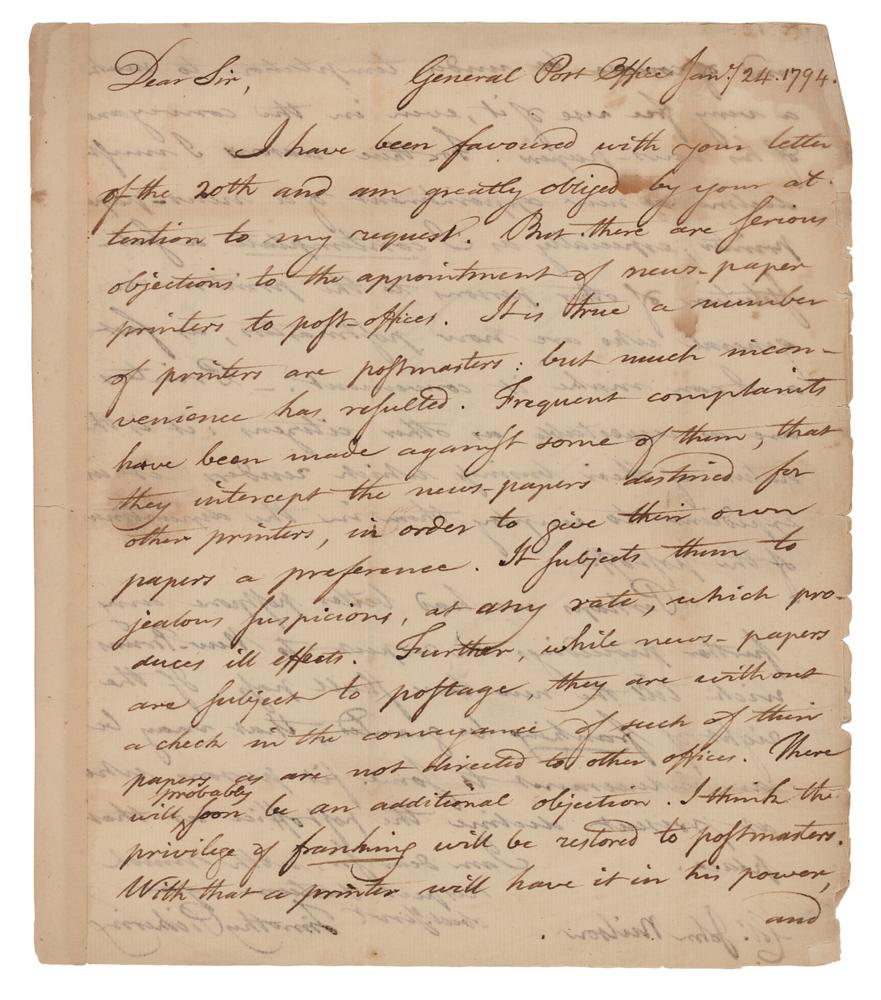 Dear Sir, General Post Office Jany 24. 1794.
I have been favoured with your letter
of the 20th and am greatly obliged by your at-
tention to my request. But there are serious
objections to the appointment of news-paper
printers to post-offices. It is true a number
of printers are postmasters: but much incon-
venience has resulted. Frequent complaints
have been made against some of them, that
they intercept the news-papers destined for
other printers, in order to give their own
papers a preference. It subjects them to
jealous suspicions, at any rate, which pro-
duces ill effects. Further, while news-papers
are subject to postage, they are without
a check in the conveyance of such of their
papers as are not directed to other offices. There
will probably soon be an additional objection. I think the
privilege of franking will be restored to postmasters.
With that a printer will have it in his power,
and